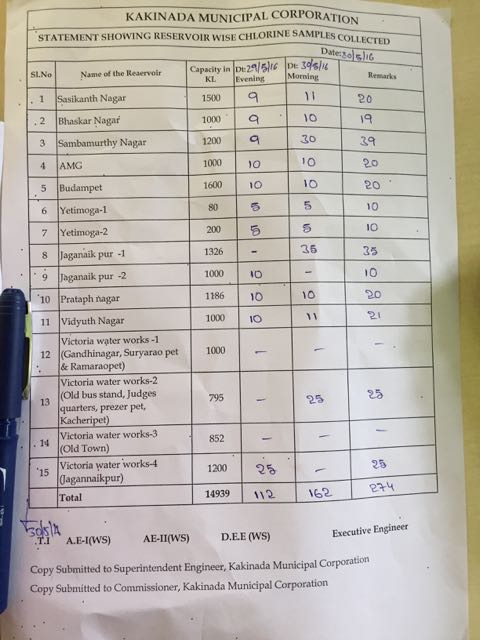 KAKINADA MUNICIPAL CORPORATION
STATEMENT SHOWING RESERVOIR WISE CHLORINE SAMPLES COLLECTED
Date:30/5/16
Sl.No Name of the Rearvoir Capacity in KL Dt:29/5/16 Evening Dt: 30/5/16 Morning Remarks
1 Sasikanth Nagar 1500 9 11 20
2 Bhaskar Nagar 1000 9 10 19
3 Sambamurthy Nagar 1200 9 30 39
4 AMG 1000 10 10 20
5 Budampet 1600 10 10 20
6 Yetimoga-1 80 5 5 10
7 Yetimoga-2 200 5 5 10
8 Jaganaik pur -1 1326 - 35 35
9 Jaganaik pur -2 1000 10 - 10
10 Prataph nagar 1186 10 10 20
11 Vidyuth Nagar 1000 10 11 21
12 Victoria water works -1 (Gandhinagar, Suryarao pet & Ramaraopet) 1000 - - -
13 Victoria water works-2 (Old bus stand, Judges quarters, prezer pet, Kacheripet) 795 - 25 25
14 Victoria water works-3 (Old Town) 852 - - -
15 Victoria water works-4 (Jagannaikpur) 1200 25 - 25
Total 14939 112 162 274
30/5/16
T.I A.E-I(WS) AE-II(WS) D.E.E (WS) Executive Engineer
Copy Submitted to Superintendent Engineer, Kakinada Municipal Corporation
Copy Submitted to Commissioner, Kakinada Municipal Corporation